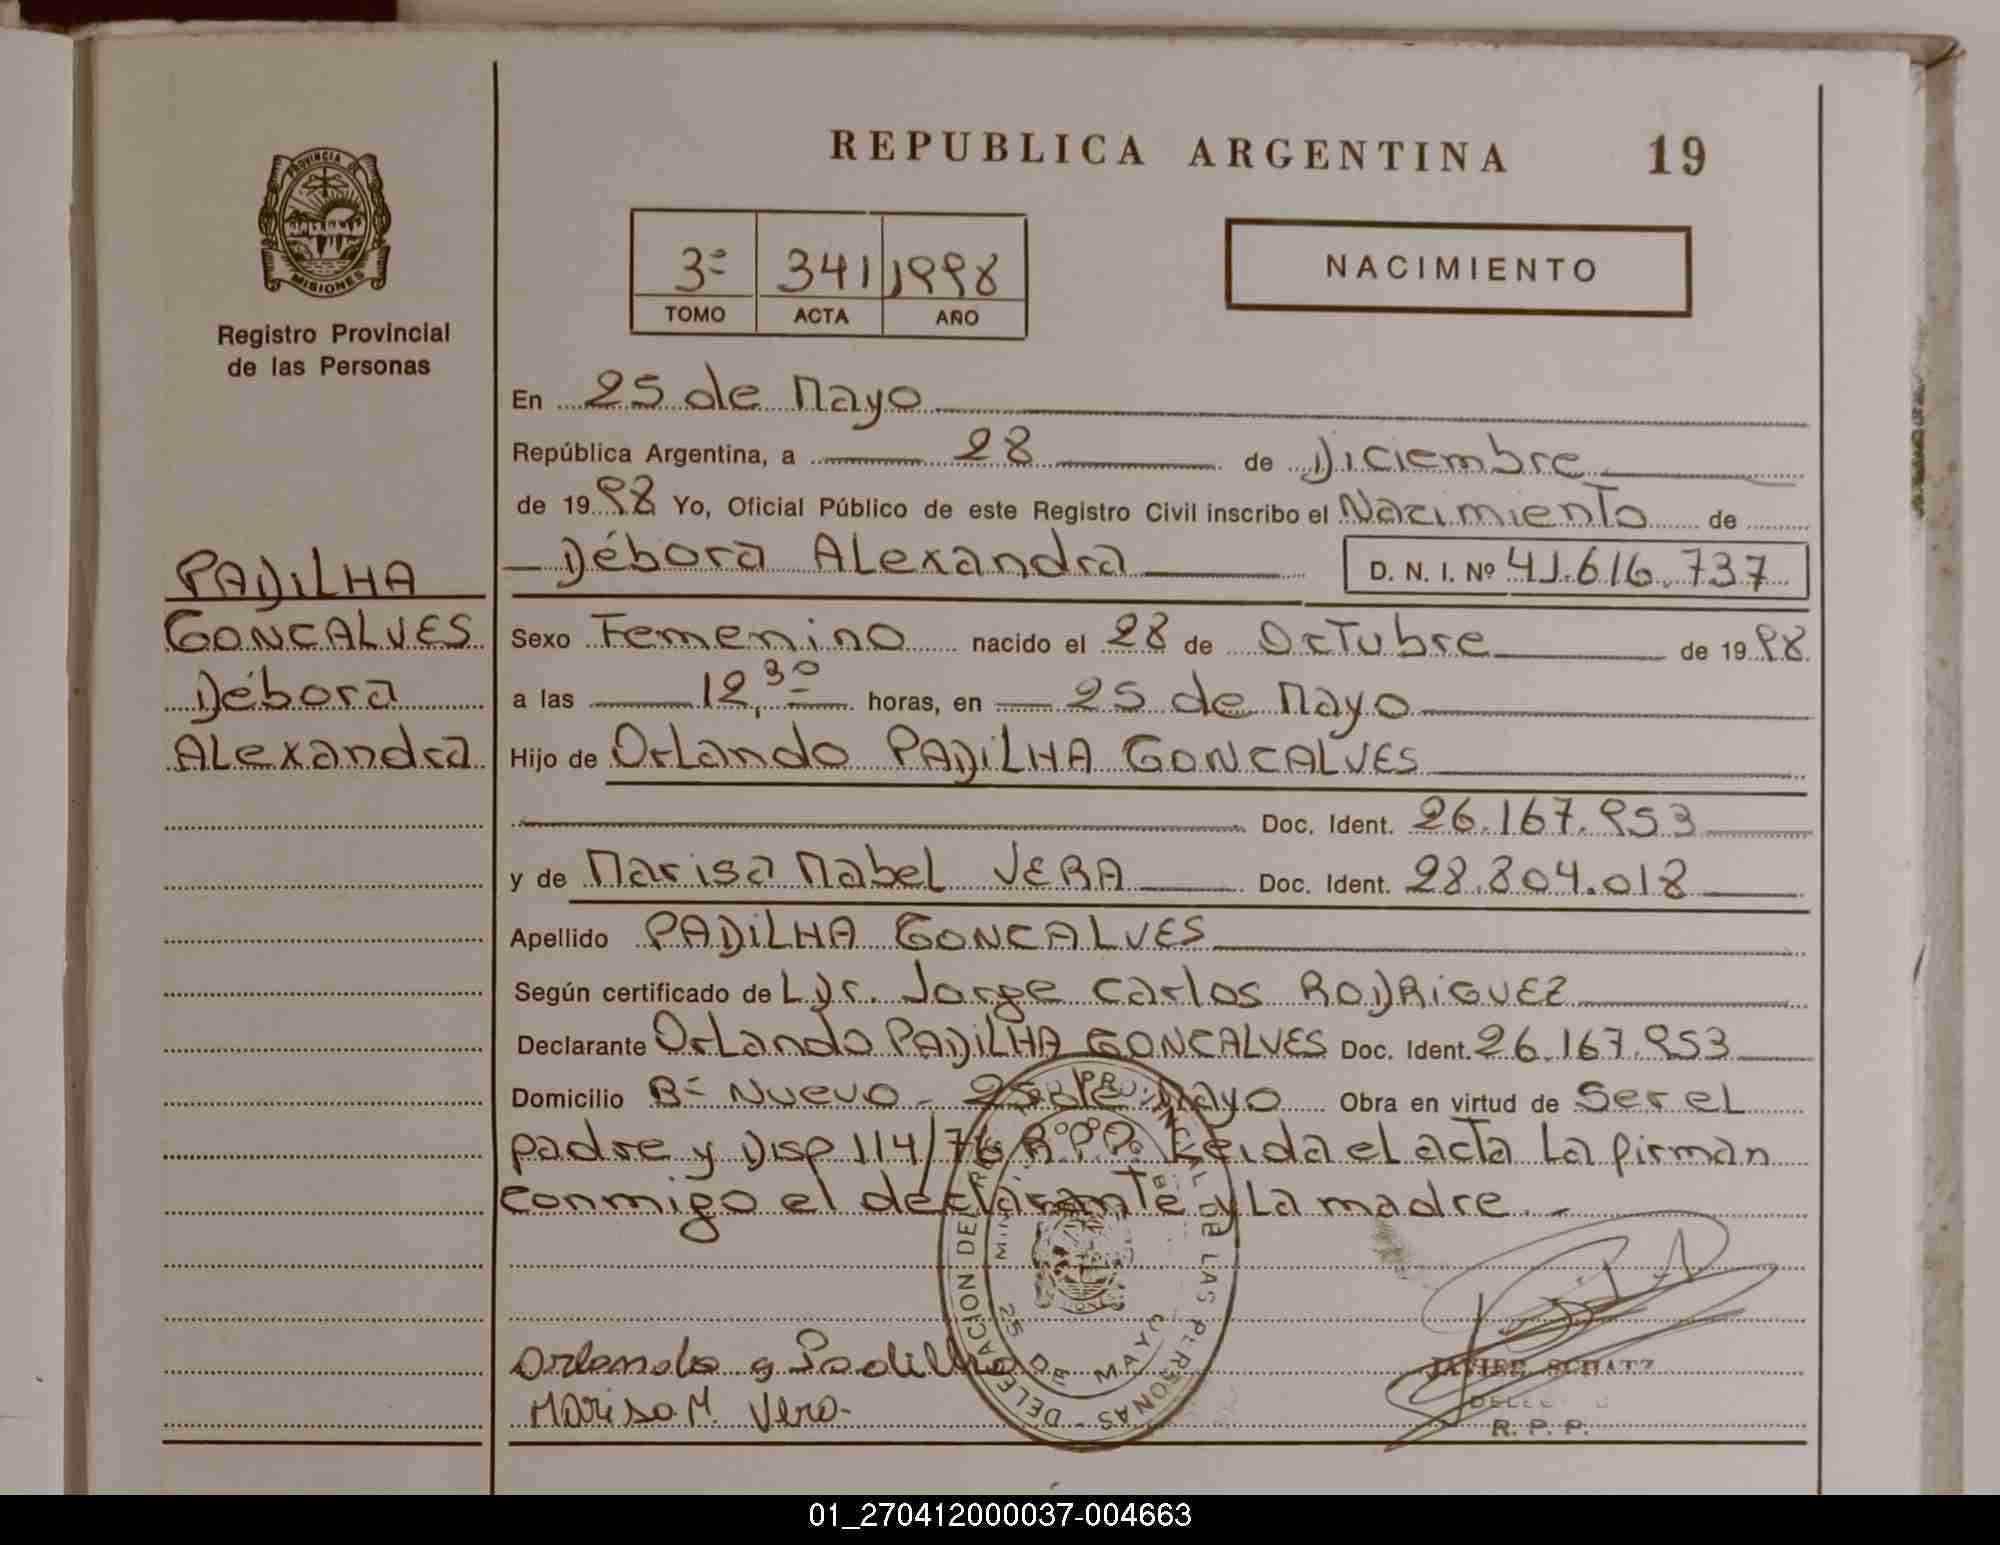 REPUBLICA ARGENTINA 19
PROVINCIA DE
MISIONES
Registro Provincial
de las Personas
3º 341 1998
TOMO ACTA AÑO
NACIMIENTO
En 25 de Mayo
República Argentina, a 28 de Diciembre
de 1998 Yo, Oficial Público de este Registro Civil inscribo el Nacimiento de
Débora Alexandra D. N. I. Nº 41.616.737
PADILHA
GONCALVES
Débora
Alexandra
Sexo Femenino nacido el 28 de Octubre de 1998
a las 12,30 horas, en 25 de Mayo
Hijo de Orlando PADILHA GONCALVES
Doc. Ident. 26.167.953
y de Marisa Mabel VERA Doc. Ident. 28.804.018
Apellido PADILHA GONCALVES
Según certificado de L Dr. Jorge Carlos RODRIGUEZ
Declarante Orlando PADILHA GONCALVES Doc. Ident. 26.167.953
Domicilio Bº Nuevo - 25 de Mayo Obra en virtud de Ser el
padre y Disp 114/76 R.P.P. Leida el acta la firman
conmigo el declarante y La madre.-
DELEGACION DEL REGISTRO PROVINCIAL DE LAS PERSONAS
25 DE MAYO
Orlando g Padilha
Marisa M. Vera-
JAVIER SCHATZ
R. P. P.
01_270412000037-004663